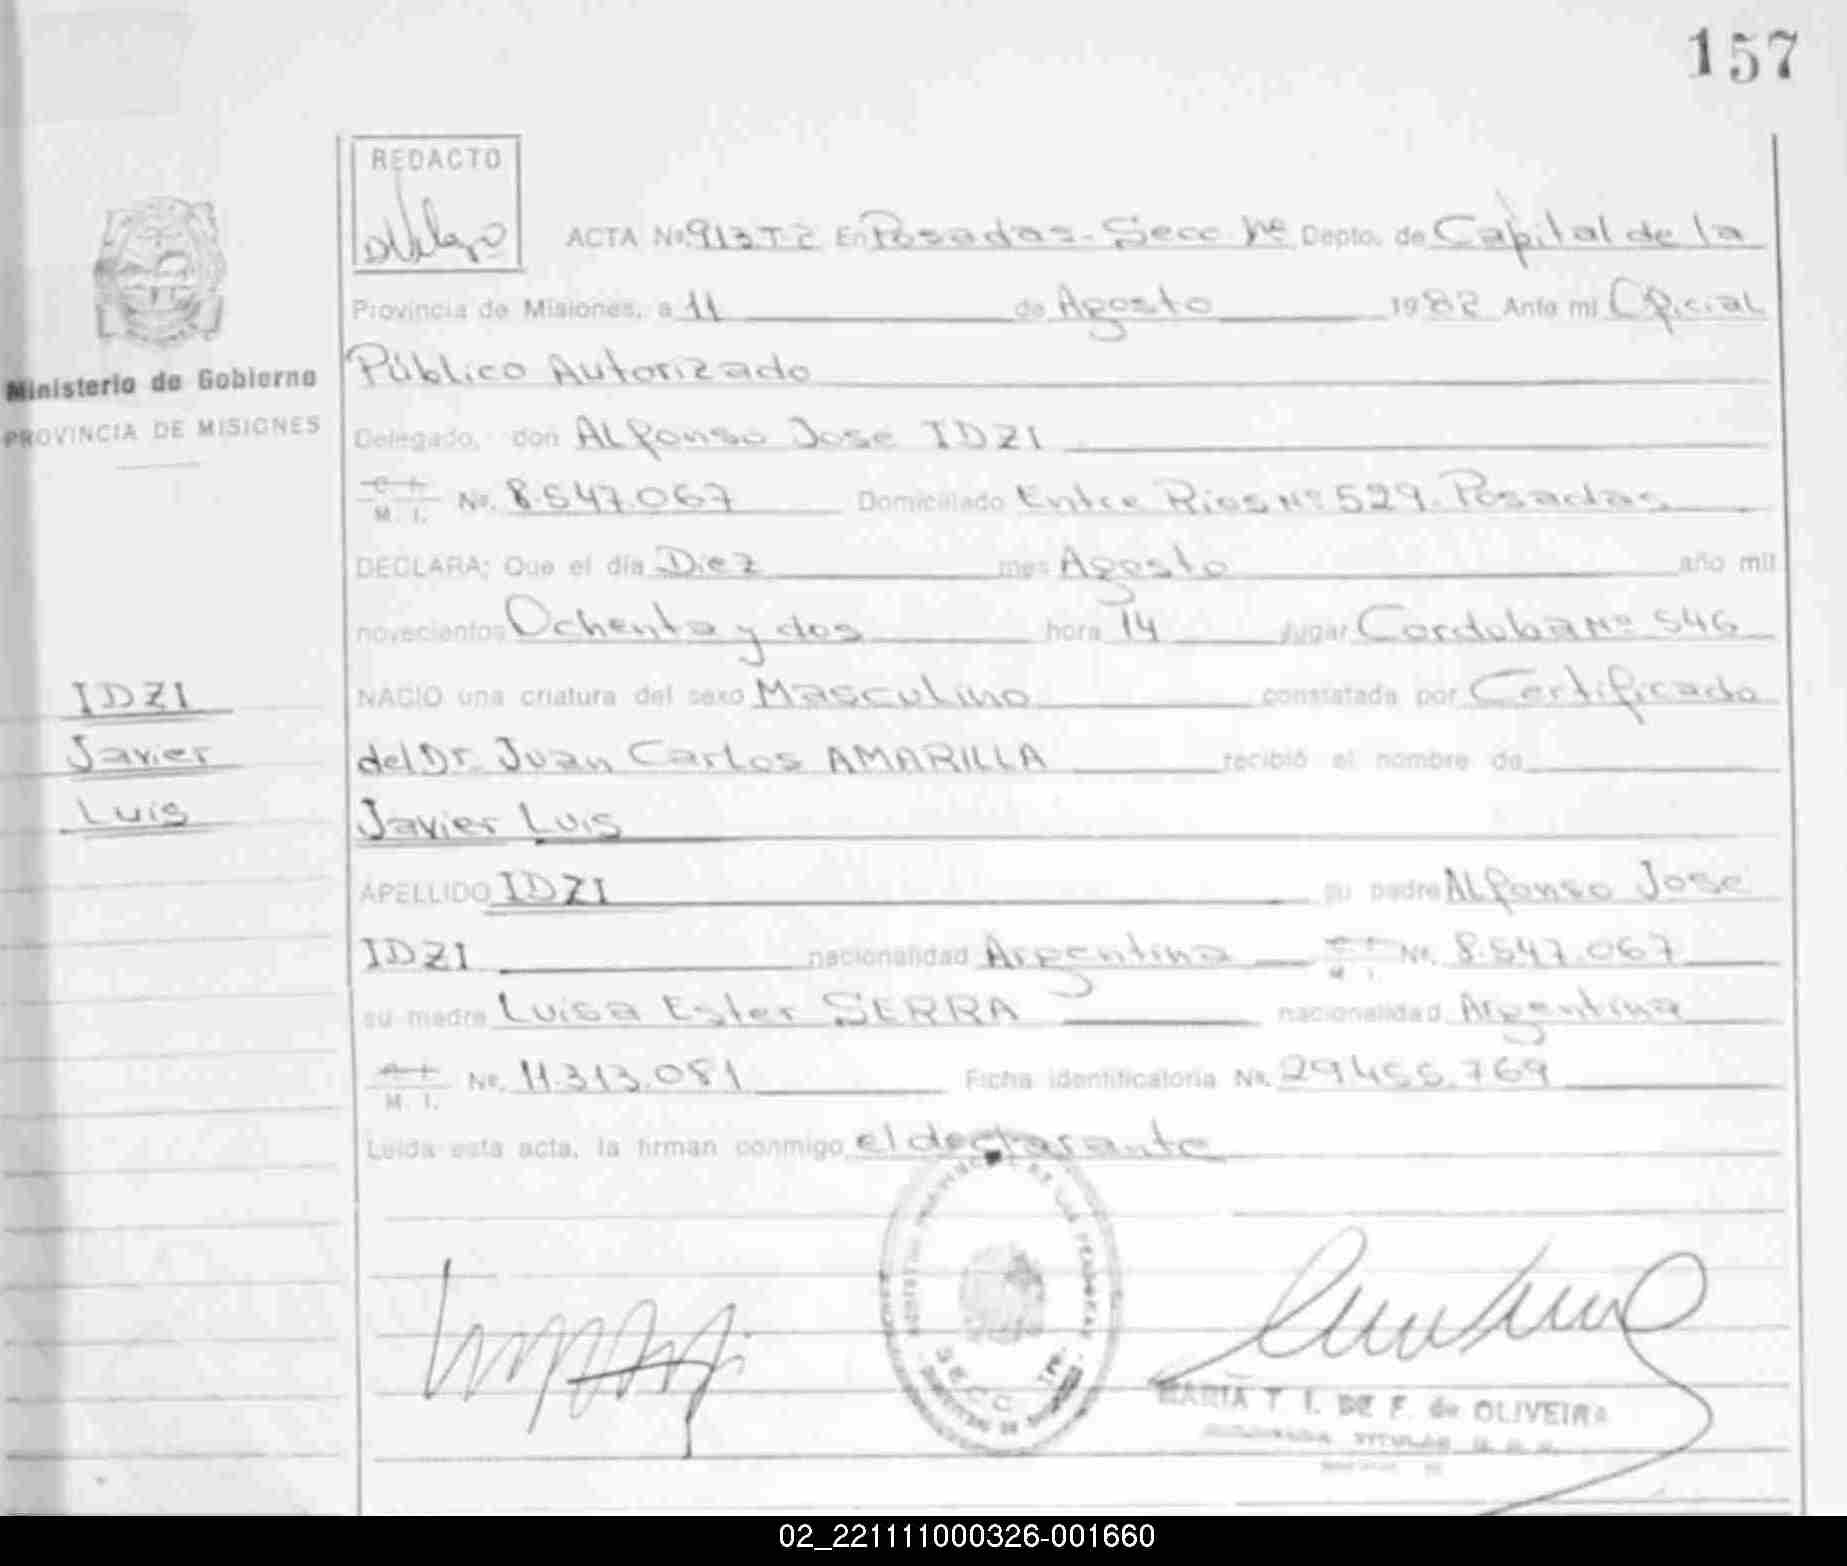 157
REDACTO
ACTA No. 913 T2 En Posadas - Secc. 1ª Depto. de Capital de la
Provincia de Misiones, a 11 de Agosto 1982 Ante mi Oficial
Público Autorizado
Ministerio de Gobierno
PROVINCIA DE MISIONES
Delegado, don Alfonso Jose IDZI
C. I. M. I. No. 8.547.067 Domiciliado Entre Rios Nº 529. Posadas
DECLARA: Que el día Diez mes Agosto año mil
novecientos Ochenta y dos hora 14 lugar Cordoba Nº 546
IDZI
NACIO una criatura del sexo Masculino constatada por Certificado
Javier
del Dr. Juan Carlos AMARILLA recibió el nombre de
Luis
Javier Luis
APELLIDO IDZI su padre Alfonso Jose
IDZI nacionalidad Argentina C. I. M. I. No. 8.547.067
su madre Luisa Ester SERRA nacionalidad Argentina
M. I. No. 11.313.081 Ficha identificatoria No. 29.455.769
Leída esta acta, la firman conmigo el declarante
SECC.
MARIA T I. DE F. de OLIVEIRA
02_221111000326-001660